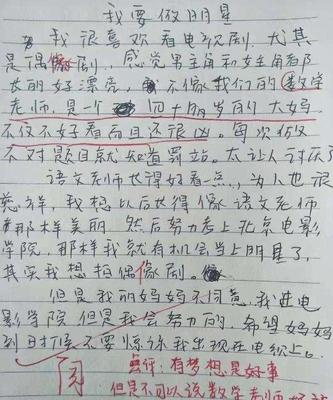 我要做明星
我很喜欢看电视剧.尤其
是偶像剧.感觉男主角和女主角都
长的好漂亮,不像我们的数学
老师,是一个四十加岁的大妈
不仅不好看而且还很凶。每次做
不对题目就知道罚站。太让人讨厌了
语文老师长得好看一点,为人也很
慈祥,我想以后长得像语文老师
那样美丽.然后努力考上北京电影
学院.那样我就有机会当上明星了,
其实我想拍偶像剧。
但是我的妈妈不同意.我进电
影学院.但是我会努力的,希望妈妈
到时候不要惊讶我出现在电视上。
阅
点评:有梦想是好事
但是不可以说数学老师